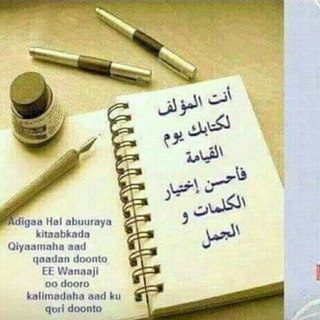 أنت المؤلف
لكتابك يوم
القيامة
فأحسن إختيار
الكلمات و
الجمل
Adigaa Hal abuuraya
kitaabkada
Qiyaamaha aad
qaadan doonto
EE Wanaaji
oo dooro
kalimadaha aad ku
qori doonto